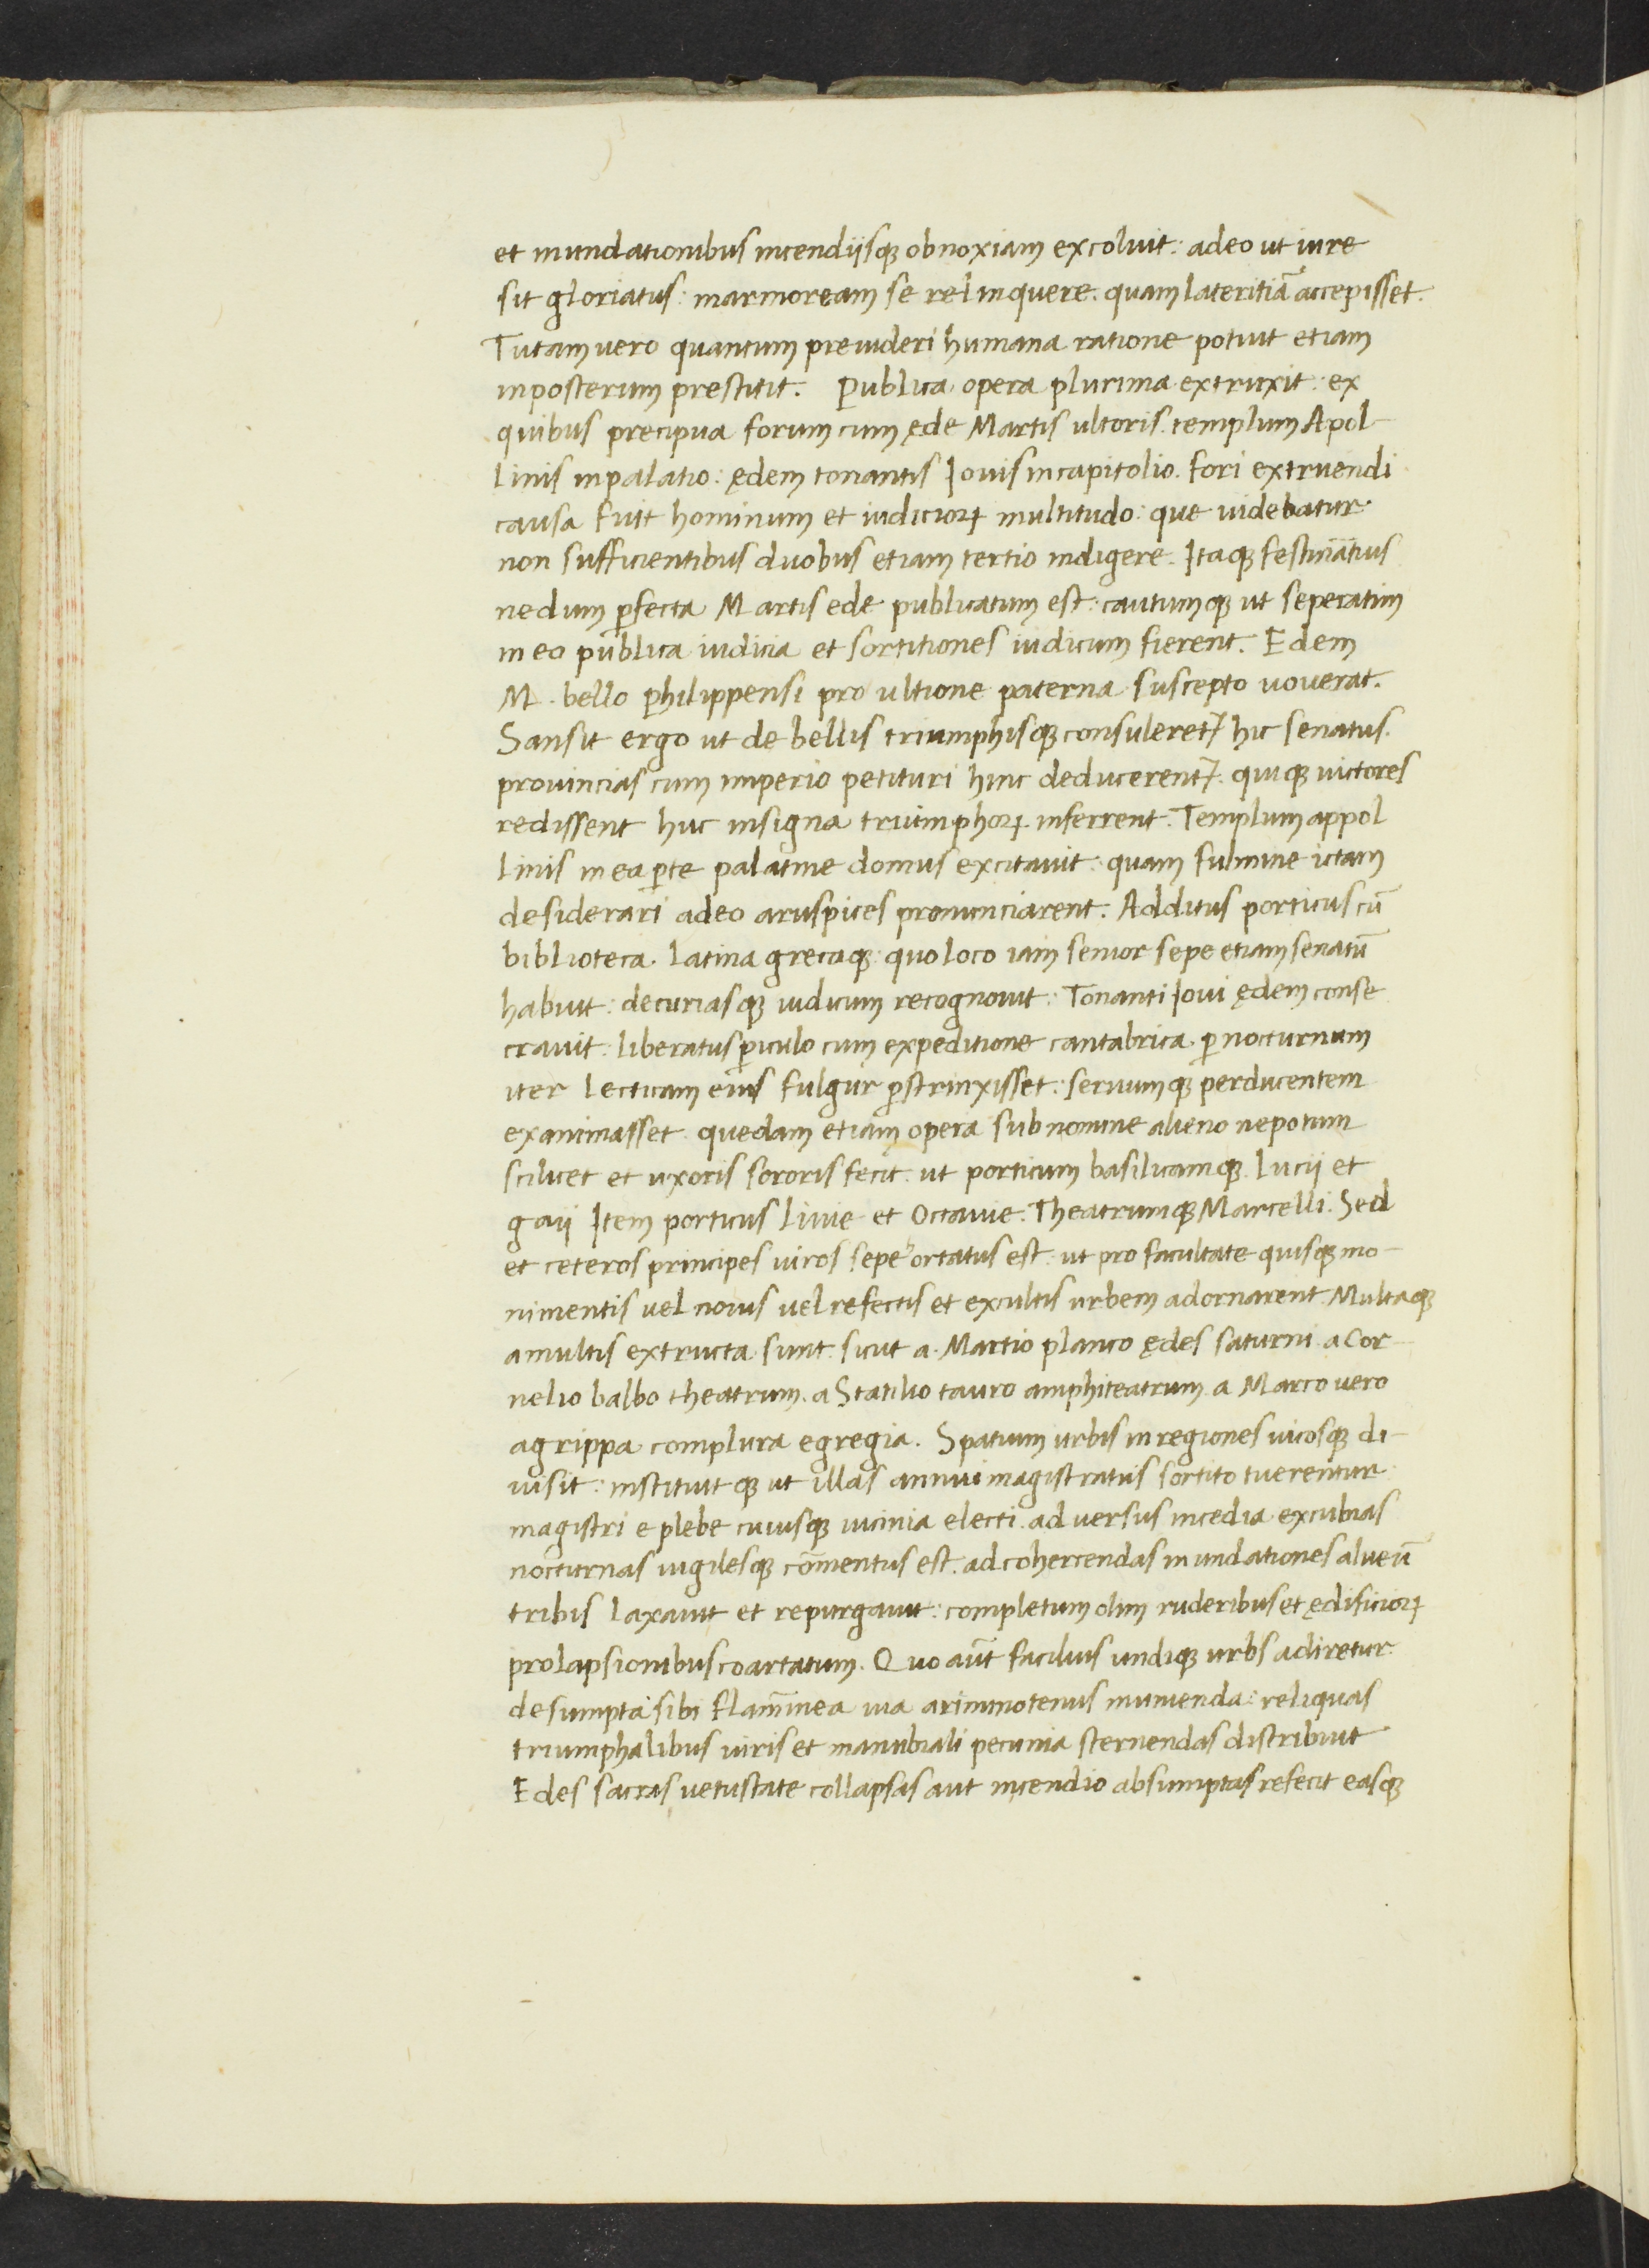 et inundationibus incendijsqꝫ obnoxiam excoluit: adeo ut iure
sit gloriatus: marmoream se relinquere. quam lateritiā accepisset.
Tutam uero quantum preuideri humana ratione potuit etiam
in posterum prestitit. Publica opera plurima extruxit: ex
quibus precipua forum cum ęde Martis ultoris. templum Apol-
linis in palatio: ędem tonantis Iouis in capitolio. Fori extruendi
causa fuit hominum et iudicioꝝ multitudo: que uidebatur
non sufficientibus duobus etiam tertio indigere. Itaqꝫ festinātius
nedum ꝑfecta Martis ede publicatum est: cautumqꝫ ut seperatim
in eo publica iudicia et sortitiones iudicum fierent. Edem
M. bello philippensi pro ultione paterna suscepto uouerat.
Sansit ergo ut de bellis triumphisqꝫ consuleretꝛ hic senatus.
prouincias cum imperio petituri hinc deducerentꝛ. quiqꝫ uictores
redissent huc insigna triumphoꝝ inferrent. Templum appol
linis in ea ꝑte palatine domus excitauit: quam fulmine ictam
desiderari adeo aruspices pronunciarent. Additus porticus cū
biblioteca. latina grecaqꝫ: quo loco iam senior sepe etiam senatū
habuit: decuriasqꝫ iudicum recognouit: Tonanti Ioui ędem conse
crauit: liberatus ꝑiculo cum expeditione cantabrica. ꝑ nocturnum
iter lecticam eius fulgur ꝑstrinxisset: seruumqꝫ perducentem
exanimasset. quedam etiam opera sub nomine alieno nepotum
scilicet et uxoris sororis fecit. ut porticum basilicamqꝫ lucij et
gaij Item porticus liuie et Octauie. Theatrumqꝫ Marcelli. Sed
et ceteros principes uiros sepe hortatus est: ut pro facultate quisqꝫ mo-
nimentis uel nouis uel refectis et excultis urbem adornarent. Multaqꝫ
a multis extructa sunt: sicut a. Martio planco ędes saturni. a Cor-
nelio balbo theatrum. a Statilio tauro amphiteatrum. a Marco uero
agrippa complura egregia. Spatium urbis in regiones uicosqꝫ di-
uisit: instituitqꝫ ut illas annui magistratus sortito tuerentur:
magistri e plebe cuiusqꝫ uicinia electi. aduersus incedia excubias
nocturnas uigilesqꝫ cōmentus est. ad cohercendas inundationes alueū
tribis laxauit et repurgauit: completum olim ruderibus et ędificioꝝ
prolapsionibus coartatum. Quo aūt facilius undiqꝫ urbs adiretur
desumpta sibi flaminea uia ariminotenus munienda: reliquas
triumphalibus uiris et manubiali pecunia sternendas distribuit
Edes sacras uetustate collapsas aut incendio absumptas refecit easqꝫ